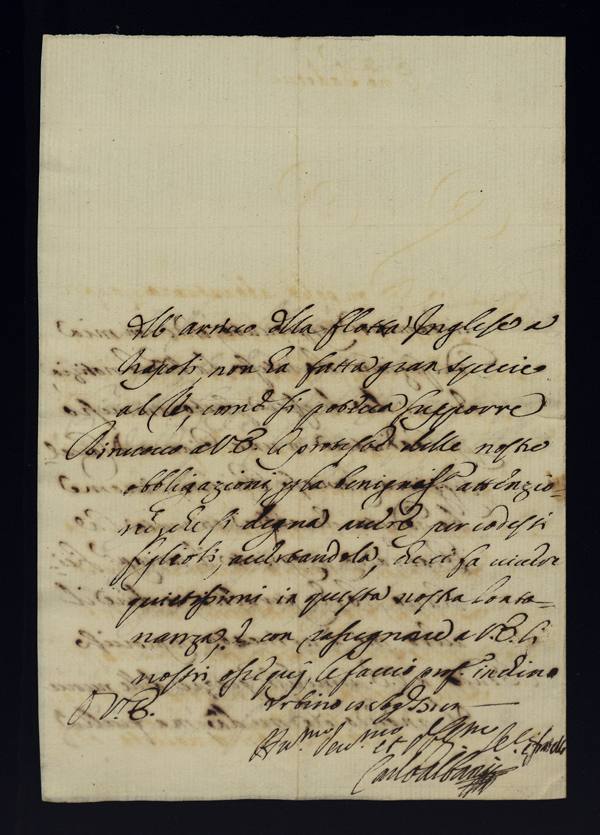 dell' arrivo della flotta Inglese a
Napoli non ha fatta gran specie
al Rè, come si poteva supporre
Rinuovo a V.E. le proteste delle nostre
obbligazioni p la benigniss.ª attenzio-
ne, che si degna avere per codesti
figlioli, accertandola, che ci fa vivere
quietissimi in questa nostra lonta-
nanza, e con rassegnare a V.E. li
nostri ossequij, le faccio prof.ª inchino
D V.E. Urbino
Hu.mo Deu.mo et Obb.mo Se.
Carlo Albani